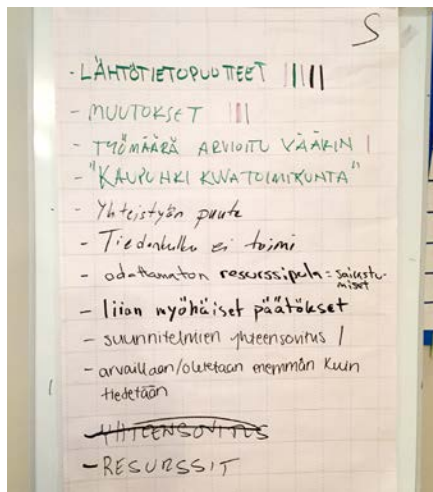 S
- LÄHTÖTIETOPUUTTEET |||||
- MUUTOKSET |||
- TYÖMÄÄRÄ ARVIOITU VÄÄRIN |
- "KAUPUNKI KUVATOIMIKUNTA"
- Yhteistyön puute
- Tiedonkulku ei toimi
- odottamaton resurssipula = sairastu-
miset
- liian myöhäiset päätökset
- suunnitelmien yhteensovitus |
- arvaillaan/oletetaan enemmän kuin
tiedetään
- YHTEENSOVITUS
- RESURSSIT